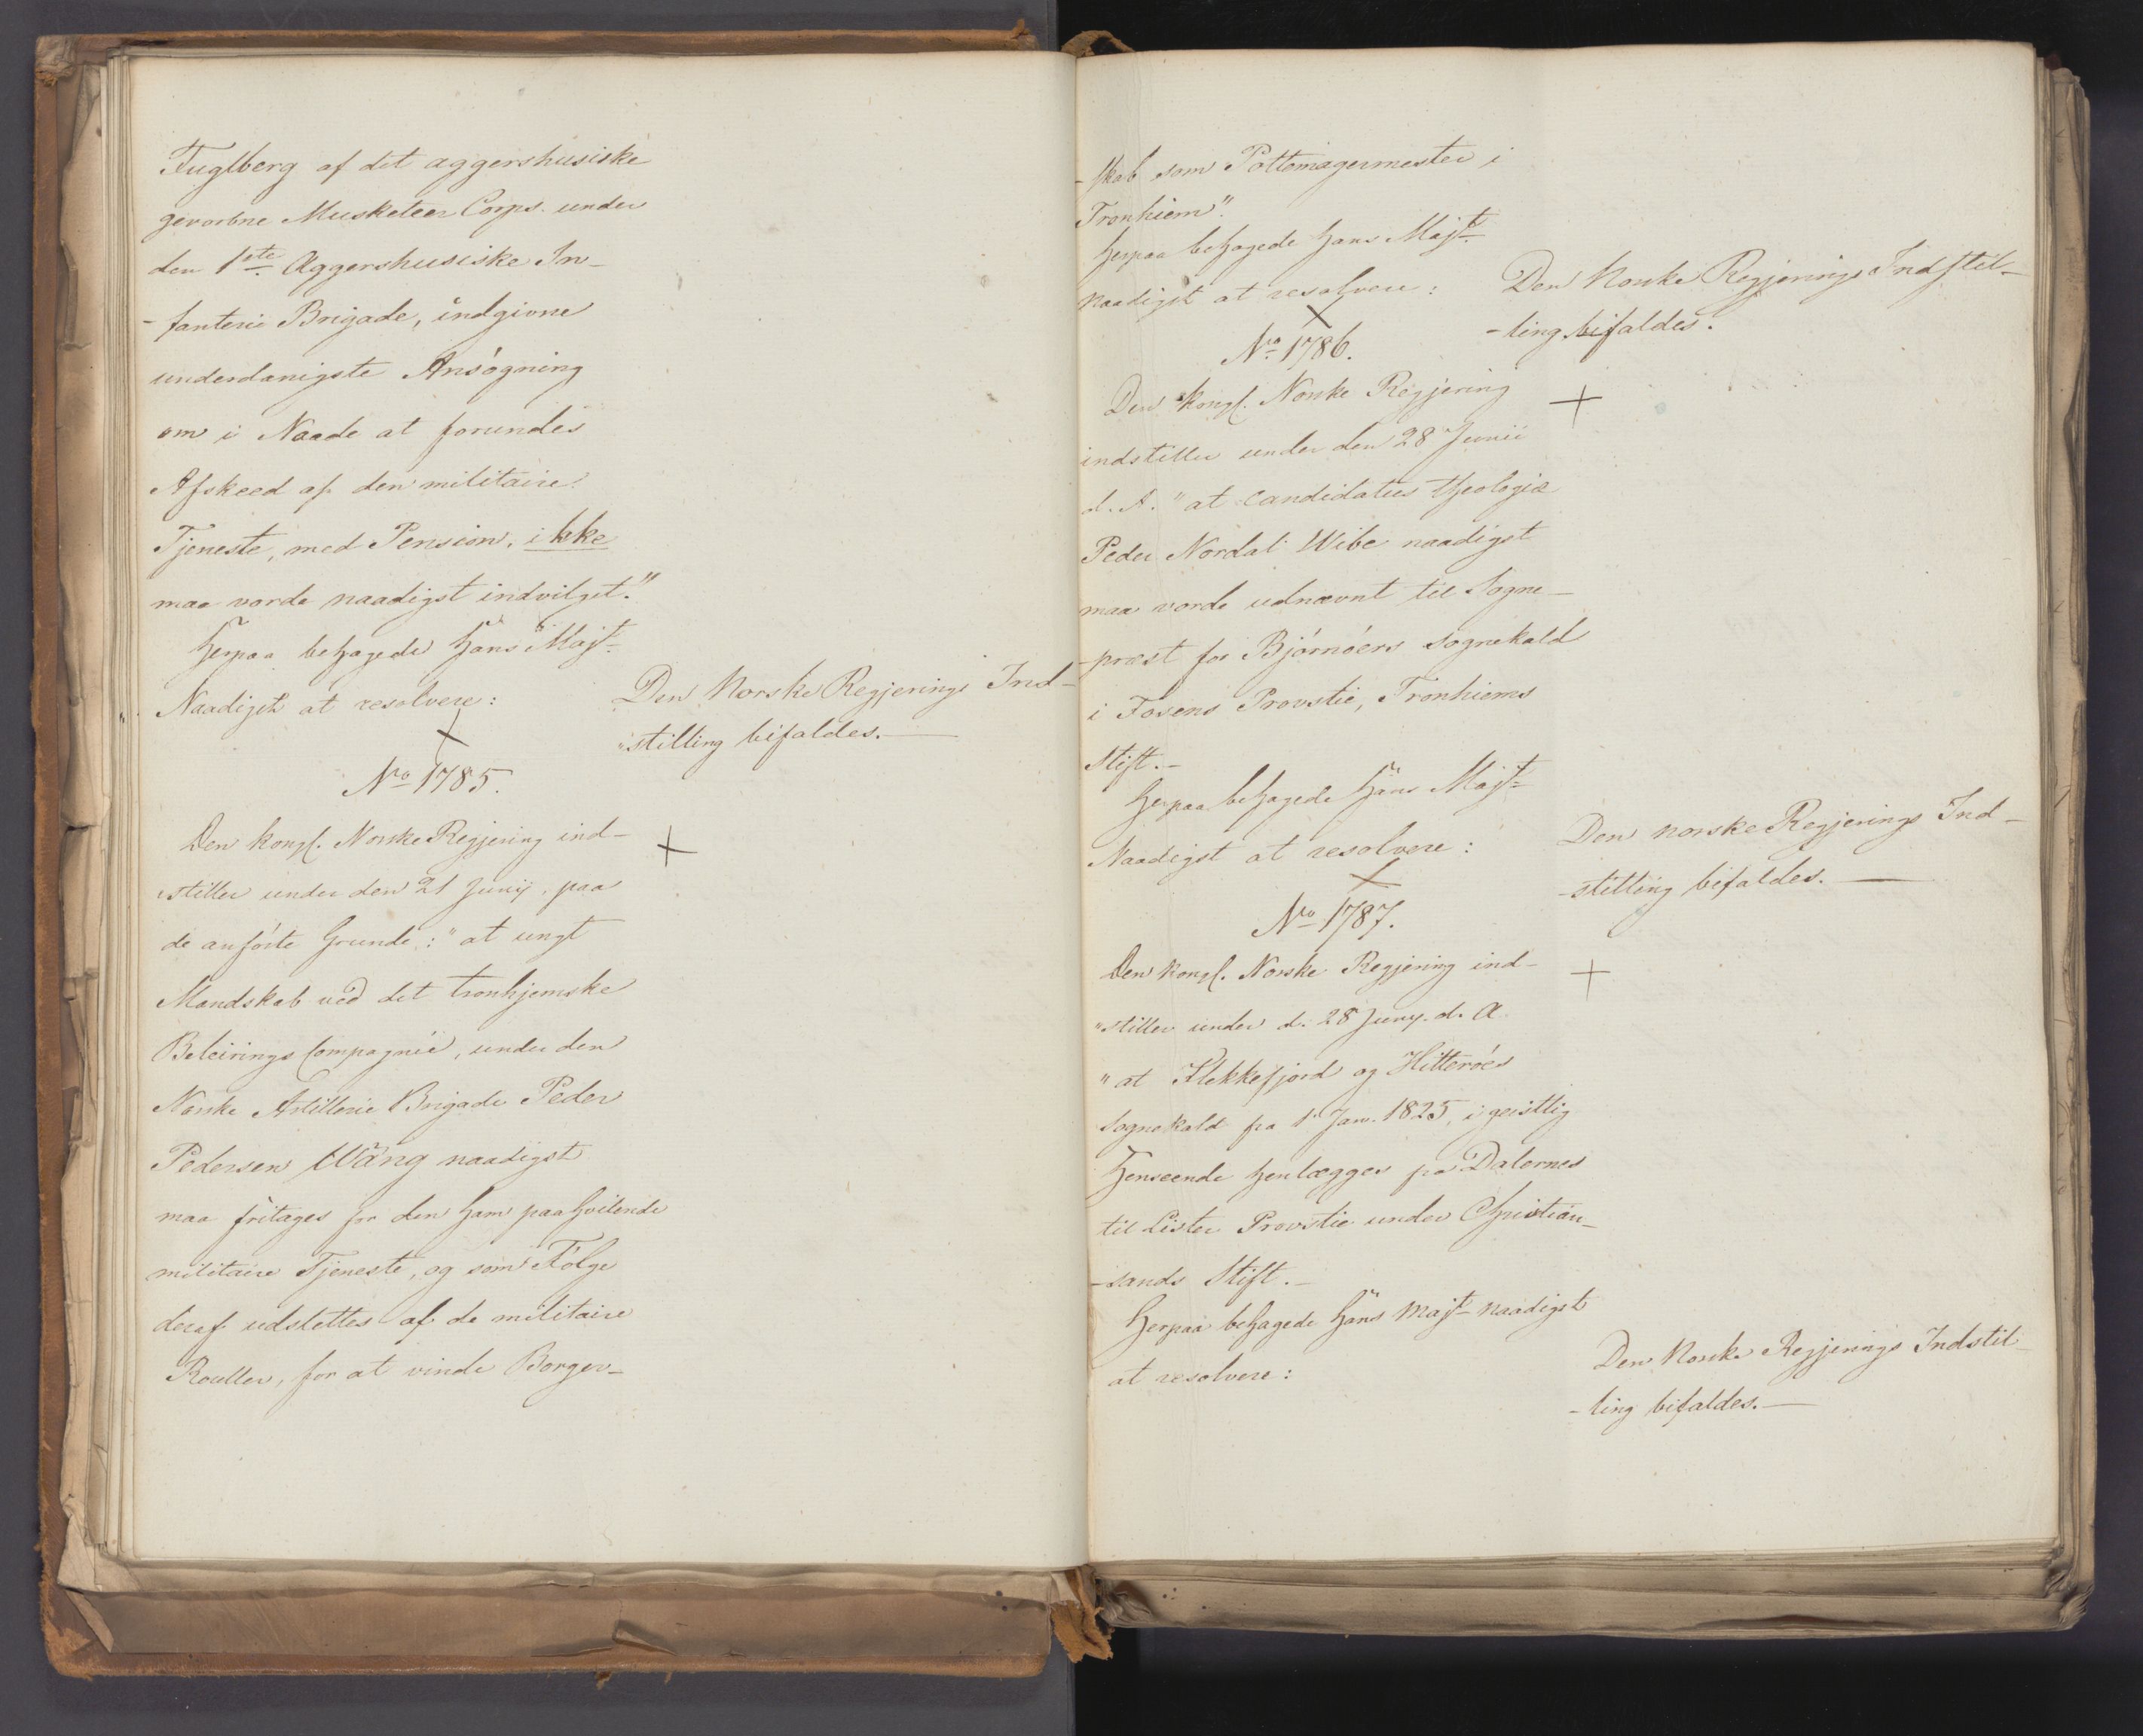 Fuglberg af det aggershusiske
gevorbne Musketeer Corps under
den 1ste Aggershusiske In-
-fanterie Brigade, indgivne
underdanigste Ansøgning
om i Naade at forundes
Afskeed af den militaire
Tjeneste, med Pension, ikke
maa vorde naadigst indvilget."
Herpaa behagede Hans Majt
Naadigst at resolvere:
Den Norske Regjerings Ind-
"stilling bifaldes.
No 1785.
Den kongl. Norske Regjering ind-
stiller under den 21 Junij, paa
de anførte Grunde: "at ungt
Mandskab ved det tronhjemske
Beleirings Compagnie, under den
Norske Artillerie Brigade Peder
Pedersen Wang naadigst
maa fritages for den ham paahvilende
militaire Tjeneste, og som Følge
deraf udslettes af de militaire
Rouller, for at vinde Borger-
-skab som Pottemagermester i
Tronhiem".
Herpaa behagede Hans Majt
naadigst at resolvere:
Den Norske Regjerings Indstil-
-ling bifaldes.
No 1786.
Den Kongl. Norske Regjering
indstiller under den 28 Junii
d. A. "at Candidatus theologiæ
Peder Nordal Wibe naadigst
maa vorde udnævnt til Sogne-
-præst for Bjørnøers Sognekald
i Fosens Provstie, Tronhiems
Stift.-
Herpaa behagede Hans Majt
Naadigst at resolvere:
Den norske Regjerings Ind-
-stilling bifaldes.
No 1787.
Den kongl. Norske Regjering ind-
"stiller under d. 28 Juny. d. A
"at Flekkefjord og Hitterøes
Sognekald fra 1 Jan. 1825, i geistlig
Henseende henlægges fra Dalernes
til Lister Provstie under Christian-
-sands Stift.-
Herpaa behagede Hans Majt naadigst
at resolvere:
Den Norske Regjerings Indstil-
-ling bifaldes.